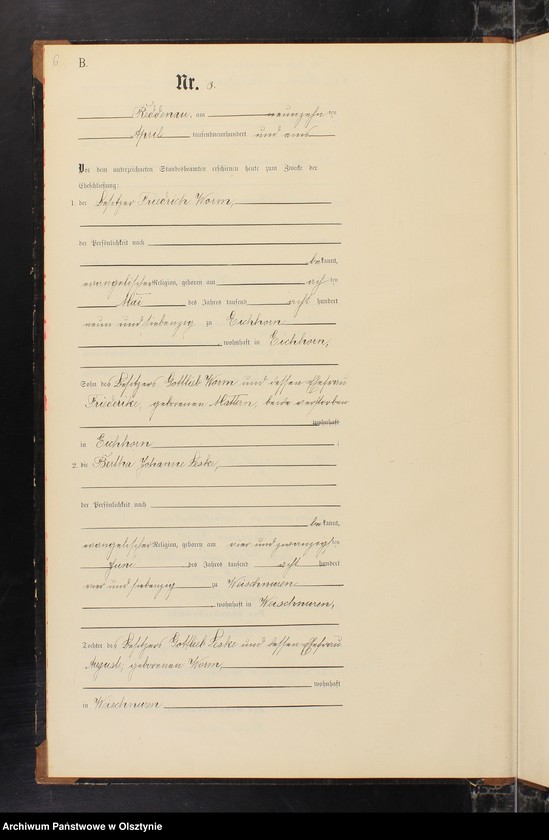 6 B.
Nr. 8.
Röddenau, am neunzehn ten
April tausendneunhundert und eins
Vor dem unterzeichneten Standesbeamten erschienen heute zum Zwecke der
Eheschließung:
1. der Besitzer Friedrich Worm,
der Persönlichkeit nach
bekannt,
evangelischer Religion, geboren am ach ten
Mai des Jahres tausend acht hundert
neun und siebenzig zu Eichhorn
, wohnhaft in Eichhorn,
Sohn des Besitzers Gottlieb Worm und dessen Ehefrau
Friederike, geborenen Mattern, beide verstorben
wohnhaft
in Eichhorn ;
2. die Bertha Johanne Leske,
der Persönlichkeit nach
bekannt,
evangelischer Religion, geboren am vier und zwanzigsten
Juni des Jahres tausend acht hundert
vier und siebenzig zu Waschmuren
, wohnhaft in Waschmuren,
Tochter des Besitzers Gottlieb Leske und dessen Ehefrau
August, geborenen Worm,
wohnhaft
in Waschmuren
Archiwum Państwowe w Olsztynie